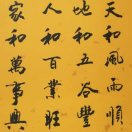 天和風雨順
地和五谷豐
人和百業旺
家和萬事興